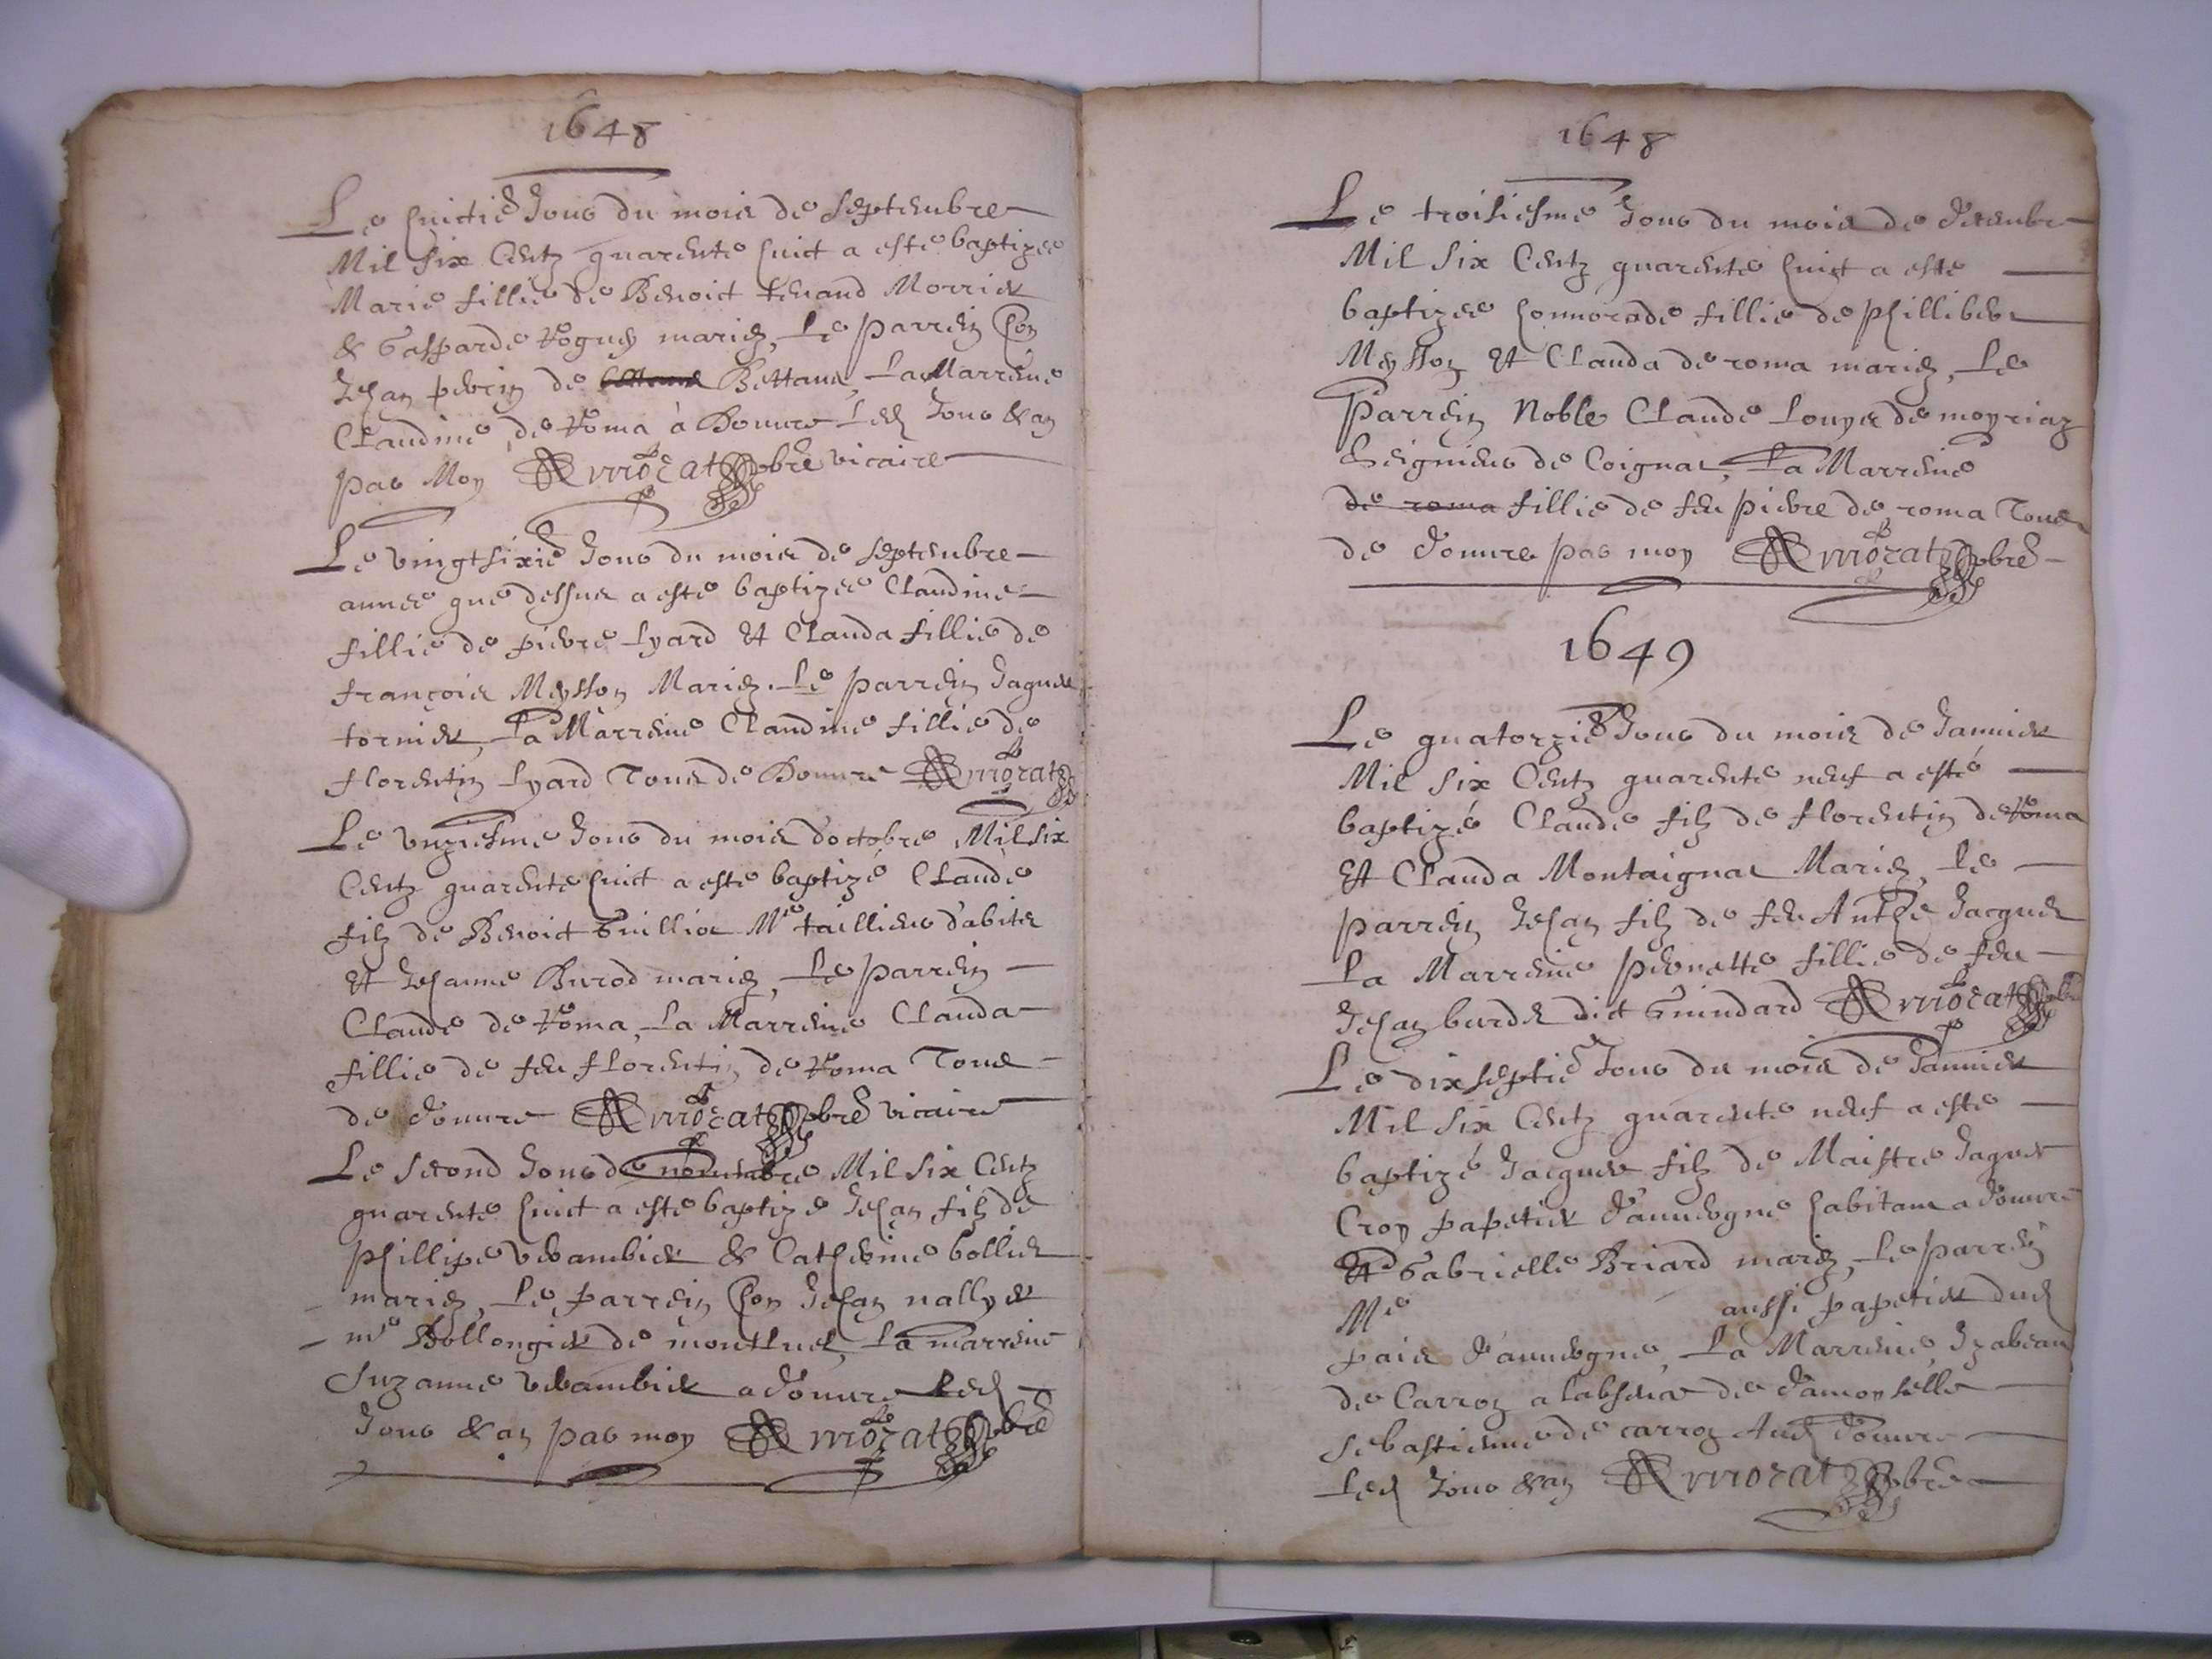 1648
Le huictie Jour du mois de septembre
Mil six Centz quarente huict a este baptizee
Marie fillie de Benoict tenand Morrier
& Gasparde Roguy mariez, Le parrein hon
Jehan perrin de Bettans, La Marreine
Claudine de Roma à Douure Led Jour & an
par Moy Morat pbre vicaire
Le vingtsixie Jour du mois de septembre
annee que dessus a este baptizee Claudine
fillie de pierre Lyard et Clauda fillie de
françois Meysson Mariez. Le parrein Jaques
tornier, La Marreine Claudine fillie de
florentin Lyard Tous de Douure Morat
Le vnziesme Jour du mois d'octobre Mil six
Centz quarente huict a este baptizé Claude
filz de Benoict Guilliot Me taillieur d'abitz
et Jehanne Burod mariez, Le parrein
Claude de Roma, La Marreine Clauda
fillie de feu florentin de Roma Tous
de douure Morat pbre vicaire
Le second Jour de nouembre Mil six Centz
quarente huict a este baptizé Jehan filz de
phillipe verambier & Catherine bollier
mariez, Le parrein hon Jehan nallyer
me Bollongier de montluel, La marreine
Suzanne verambier a douure Led
Jour & an par moy Morat pbre
1648
Le troisiesme Jour du mois de decembre
Mil six Centz quarente huict a este
baptizee honnorade fillie de phillibert
Meysson et Clauda de roma mariez, Le
Parrein Noble Claude Louys de moyriaz
Seignieur de Coignat, La Marreine
de roma fillie de feu pierre de roma Tous
de douure par moy Morat pbre
1649
Le quatorzie Jour du mois de Januier
Mil six Centz quarente neuf a esté
baptizé Claude filz de florentin de Roma
et Clauda Montaignat Mariez, Le
parrein Jehan filz de feu Anthe Jacques
La Marreine pernette fillie de feu
Jehan burdet dict Guindard Morat pbre
Le dixseptie Jour du mois de Januier
Mil six Centz quarente neuf a este
baptizé Jacques filz de Maistre Jaques
Croy papetier d'auuergne habitant a douure
et Gabrielle Briard mariez, Le parrein
Me aussi papetier dud
pais d'auuergne, La Marreine Izabeau
de Carroz a l'absence de damoyselle
sebastienne de carroz Aud douure
Led Jour & an Morat pbre